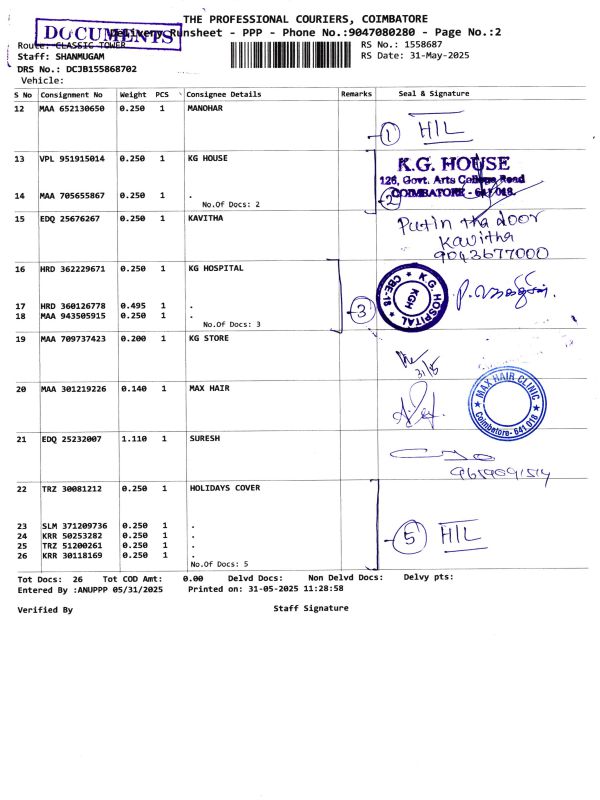 THE PROFESSIONAL COURIERS, COIMBATORE
DOCUMENTS
Delivery Runsheet - PPP - Phone No.:9047080280 - Page No.:2
Route: CLASSIC TOWER
RS No.: 1558687
Staff: SHANMUGAM
RS Date: 31-May-2025
DRS No.: DCJB155868702
Vehicle:
S No Consignment No Weight PCS Consignee Details Remarks Seal & Signature
12 MAA 652130650 0.250 1 MANOHAR
1 H/L
13 VPL 951915014 0.250 1 KG HOUSE
K.G. HOUSE
126, Govt. Arts College Road
COIMBATORE - 641 018.
14 MAA 705655867 0.250 1 .
2
No.Of Docs: 2
15 EDQ 25676267 0.250 1 KAVITHA
Put in the door
Kavitha
9043677000
16 HRD 362229671 0.250 1 KG HOSPITAL
K.G. HOSPITAL
KGH
CBE-18
17 HRD 360126778 0.495 1 .
18 MAA 943505915 0.250 1 .
3
No.Of Docs: 3
19 MAA 709737423 0.200 1 KG STORE
31/5
20 MAA 301219226 0.140 1 MAX HAIR
MAX HAIR CLINIC
Coimbatore- 641 018
21 EDQ 25232007 1.110 1 SURESH
22 TRZ 30081212 0.250 1 HOLIDAYS COVER
23 SLM 371209736 0.250 1 .
24 KRR 50253282 0.250 1 .
25 TRZ 51200261 0.250 1 .
26 KRR 30118169 0.250 1 .
5 H/L
No.Of Docs: 5
Tot Docs: 26 Tot COD Amt: 0.00 Delvd Docs: Non Delvd Docs: Delvy pts:
Entered By :ANUPPP 05/31/2025 Printed on: 31-05-2025 11:28:58
Verified By Staff Signature